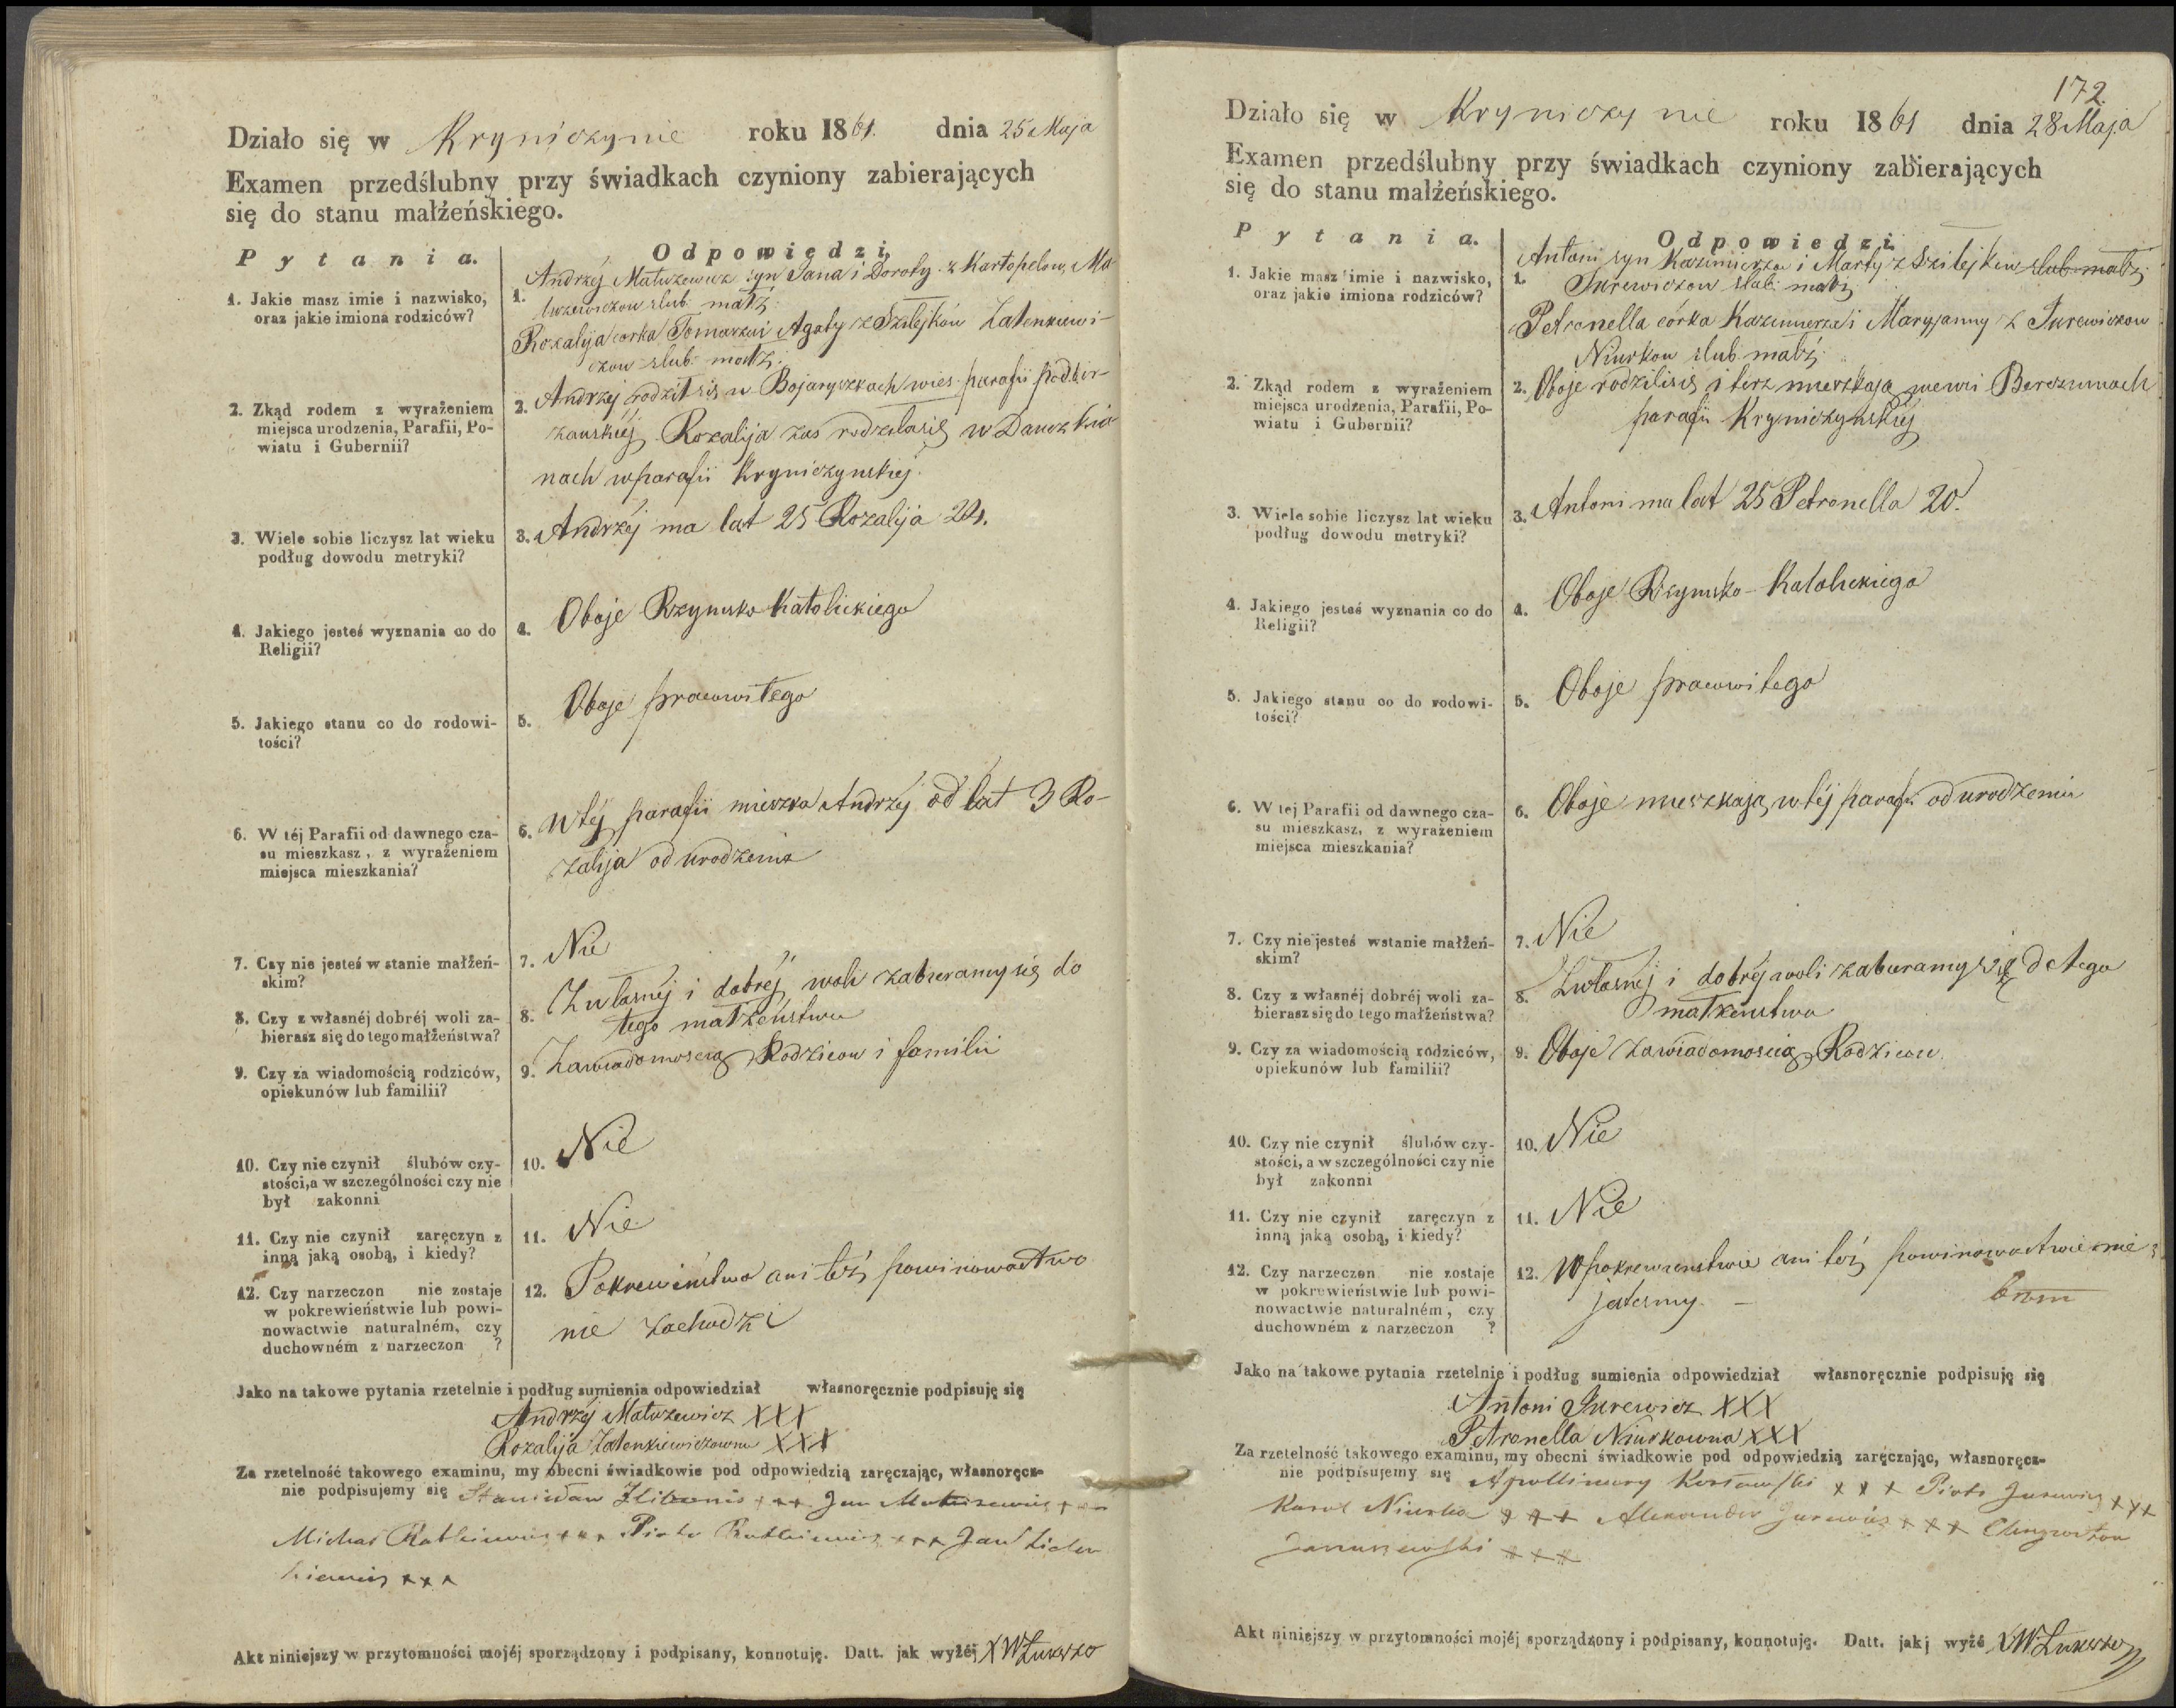 Działo się w Kryniczynie roku 1861. dnia 25 Maja
Examen przedślubny przy świadkach czyniony zabierających
się do stanu małżeńskiego.
Pytania.
Odpowiedzi,
1. Jakie masz imie i nazwisko,
oraz jakie imiona rodziców?
1. Andrzéj Matuzewicz syn Jana i Doroty z Kartopelow, Ma-
tuzewiczow ślub: małż:
Rozalija corka Tomasza i Agaty z Szilejków Zatenkiewi-
czow ślub: małż:
2. Zkąd rodem z wyrażeniem
miejsca urodzenia, Parafii, Po-
wiatu i Gubernii?
2. Andrzéj rodził się w Bojaryszkach wies parafii podbir-
zanskiéj. Rozalija zas rodziła się w
nach w parafii Kryniczynskiej.
3. Wiele sobie liczysz lat wieku
podług dowodu metryki?
3. Andrzéj ma lat 25 Rozalija 24.
4. Jakiego jesteś wyznania co do
Religii?
4. Oboje Rzymsko Katolickiego
5. Jakiego stanu co do rodowi-
tości?
5. Oboje pracowitego
6. W téj Parafii od dawnego cza-
su mieszkasz, z wyrażeniem
miejsca mieszkania?
6. W téj parafii mieszka Andrzéj od lat 3 Ro-
zalija od urodzenia
7. Czy nie jesteś w stanie małżeń-
skim?
7. Nie
8. Czy z własnéj dobréj woli za-
bierasz się do tego małżeństwa?
8. Z własnéj i dobréj woli zabieramy się do
tego małżeństwa
9. Czy za wiadomością rodziców,
opiekunów lub familii?
9. Za wiadomoscią Rodzicow i familii
10. Czy nie czynił ślubów czy-
stości, a w szczególności czy nie
był zakonni
10. Nie
11. Czy nie czynił zaręczyn z
inną jaką osobą, i kiedy?
11. Nie
12. Czy narzeczon nie zostaje
w pokrewieństwie lub powi-
nowactwie naturalném, czy
duchowném z narzeczon ?
12. Pokrewieństwo ani też powinowactwo
nie zachodzi
Jako na takowe pytania rzetelnie i podług sumienia odpowiedział własnoręcznie podpisuję się
Andrzéj Matuzewicz XXX
Rozalija Zatenkiewiczowna XXX
Za rzetelność takowego examinu, my obecni świadkowie pod odpowiedzią zaręczając, własnoręcz-
nie podpisujemy się Stanisław +++ Jan Matuzewicz +++
Michał Rutkiewicz +++ Piotr Rutkiewicz +++ Jan
+++
Akt niniejszy w przytomności mojéj sporządzony i podpisany, konnotuję. Datt. jak wyżéj X W Łukszo
172.
Działo się w Kryniczynie roku 1861 dnia 28 Maja
Examen przedślubny przy świadkach czyniony zabierających
się do stanu małżeńskiego.
Pytania.
Odpowiedzi.
1. Jakie masz imie i nazwisko,
oraz jakie imiona rodziców?
1. Antoni syn Kazimierza i Marty z Szilejkow ślub: małż:
Jurewiczow ślub: małż:
Petronella córka Kazimierza i Maryjanny z Jurewiczow
Niurkow ślub: małż:
2. Zkąd rodem z wyrażeniem
miejsca urodzenia, Parafii, Po-
wiatu i Gubernii?
2. Oboje rodzilisię i terz mieszkają we wsi Berezumach
parafii Kryniczyńskiéj
3. Wiele sobie liczysz lat wieku
podług dowodu metryki?
3. Antoni ma lat 25 Petronella 20.
4. Jakiego jesteś wyznania co do
Religii?
4. Oboje Rzymsko-Katolickiego
5. Jakiego stanu co do rodowi-
tości?
5. Oboje pracowitego
6. W tej Parafii od dawnego cza-
su mieszkasz, z wyrażeniem
miejsca mieszkania?
6. Oboje mieszkają w téj parafii od urodzenia
7. Czy nie jesteś wstanie małżeń-
skim?
7. Nie
8. Czy z własnéj dobréj woli za-
bierasz się do tego małżeństwa?
8. Z własnéj i dobréj woli zabieramy się do tego
małżeństwa
9. Czy za wiadomością rodziców,
opiekunów lub familii?
9. Oboje za wiadomoscią Rodzicow
10. Czy nie czynił ślubów czy-
stości, a w szczególności czy nie
był zakonni
10. Nie
11. Czy nie czynił zaręczyn z
inną jaką osobą, i kiedy?
11. Nie
12. Czy narzeczon nie zostaje
w pokrewieństwie lub powi-
nowactwie naturalném, czy
duchowném z narzeczon ?
12. W pokrewienstwie ani też powinowactwie nie
jestesmy. —
Jako na takowe pytania rzetelnie i podług sumienia odpowiedział własnoręcznie podpisuję się
Antoni Jurewicz XXX
Petronella Niurkowna XXX
Za rzetelność takowego examinu, my obecni świadkowie pod odpowiedzią zaręczając, własnoręcz-
nie podpisujemy się Apollinary Kosłowski +++ Piotr Jurewicz +++
Karol Niurka +++ Alexander Jurewicz +++
Januszewski +++
Akt niniejszy w przytomności mojéj sporządzony i podpisany, konnotuję. Datt. jakj wyźé X W Łukszo